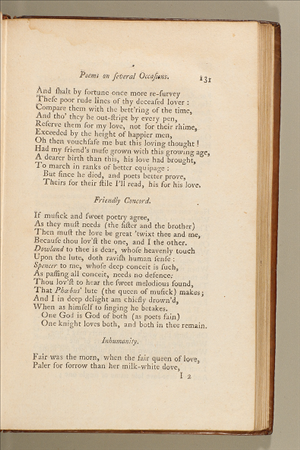 Poems on ſeveral Occaſions. 131
And ſhalt by fortune once more re-ſurvey
Theſe poor rude lines of thy deceaſed lover :
Compare them with the bett'ring of the time,
And tho' they be out-ſtript by every pen,
Reſerve them for my love, not for their rhime,
Exceeded by the height of happier men,
Oh then vouchſafe me but this loving thought !
Had my friend's muſe grown with this growing age,
A dearer birth than this, his love had brought,
To march in ranks of better equipage :
But ſince he died, and poets better prove,
Theirs for their ſtile I'll read, his for his love.
Friendly Concord.
If muſick and ſweet poetry agree,
As they muſt needs (the ſiſter and the brother)
Then muſt the love be great 'twixt thee and me,
Becauſe thou lov'ſt the one, and I the other.
Dowland to thee is dear, whoſe heavenly touch
Upon the lute, doth raviſh human ſenſe :
Spencer to me, whoſe deep conceit is ſuch,
As paſſing all conceit, needs no defence.
Thou lov'ſt to hear the ſweet melodious ſound,
That Phœbus' lute (the queen of muſick) makes ;
And I in deep delight am chiefly drown'd,
When as himſelf to ſinging he betakes.
One God is God of both (as poets fain)
One knight loves both, and both in thee remain.
Inhumanity.
Fair was the morn, when the fair queen of love,
Paler for ſorrow than her milk-white dove,
I 2